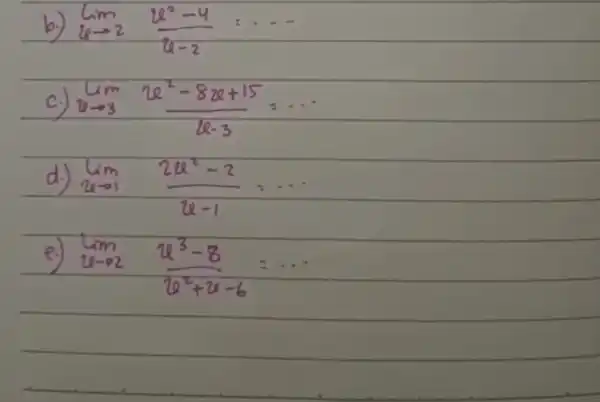 b.) lim x→2 x² - 4 / x - 2 = ....
c.) lim x→3 x² - 8x + 15 / x - 3 = ...
d.) lim x→1 2x² - 2 / x - 1 = ...
e.) lim x→2 x³ - 8 / x² + x - 6 = ...